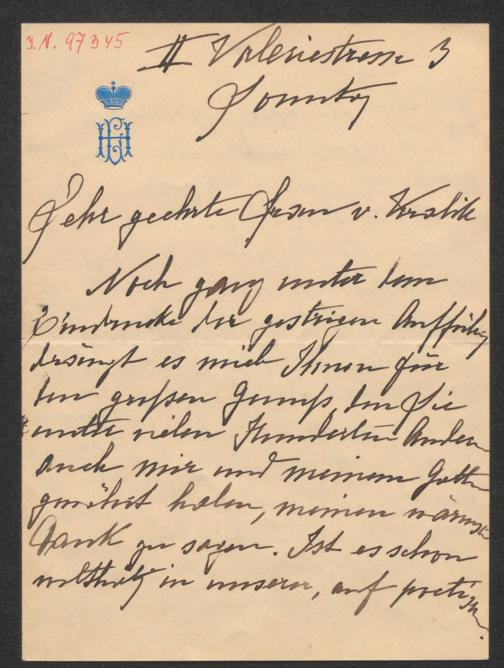 J.N. 97345
II Valeriestrasse 3
Sonntag
EH
Sehr geehrte Frau v.
Noch ganz unter dem
Eindrucke der gestrigen Aufführg
drängt es mich Ihnen für
den großen Genuß, den Sie
unter vielen Hunderten Anderen
auch mir und meinem Gatten
gewährt haben, meinen wärmsten
Dank zu sagen. Ist es schon
wolthätig in unserer, auf